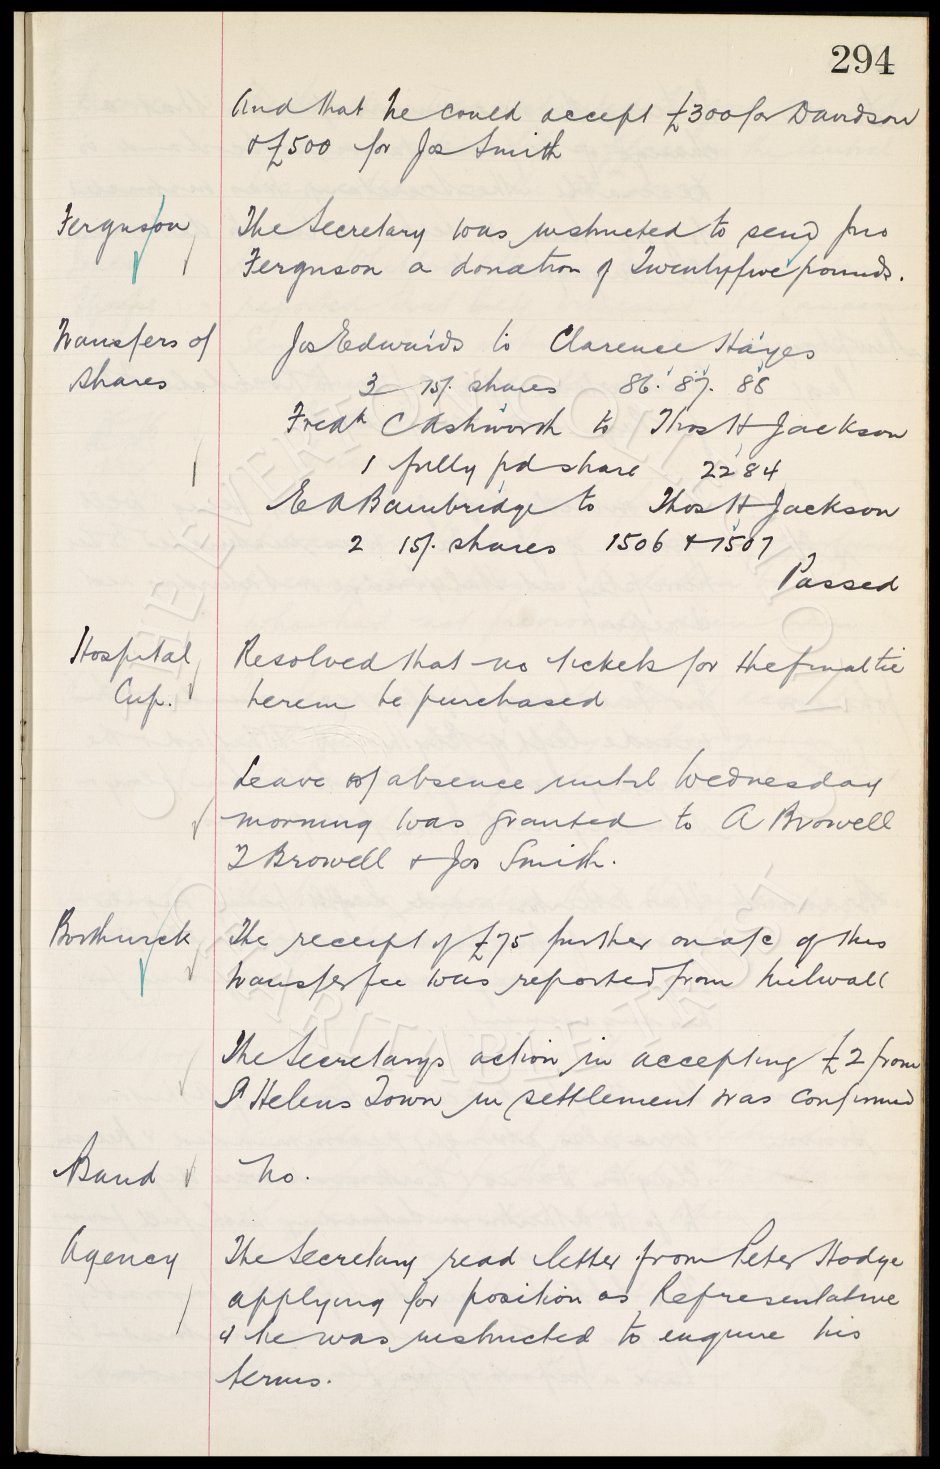 294
And that he could accept £300 for Davidson
& £500 for Jos Smith
Ferguson
The Secretary was instructed to send Jno
Ferguson a donation of Twentyfive pounds.
Transfers of
shares
Jos Edwards to Clarence Hayes
3 15/- shares 86. 87. 88
Fredk C Ashworth to Thos H Jackson
1 fully pd share 2284
E A Bainbridge to Thos H Jackson
2 15/- shares 1506 & 1507
Passed
Hospital
Cup.
Resolved that no tickets for the final tie
herein be purchased
Leave of absence until Wednesday
morning was granted to A Browell
T Browell & Jos Smith.
Borthwick
The receipt of £75 further on a/c of this
transfer fee was reported from Milwall
The Secretarys action in accepting £2 from
St Helens Town in settlement was confirmed
Band
No.
Agency
The Secretary read letter from Peter Hodge
applying for position as Representative
& he was instructed to enquire his
terms.